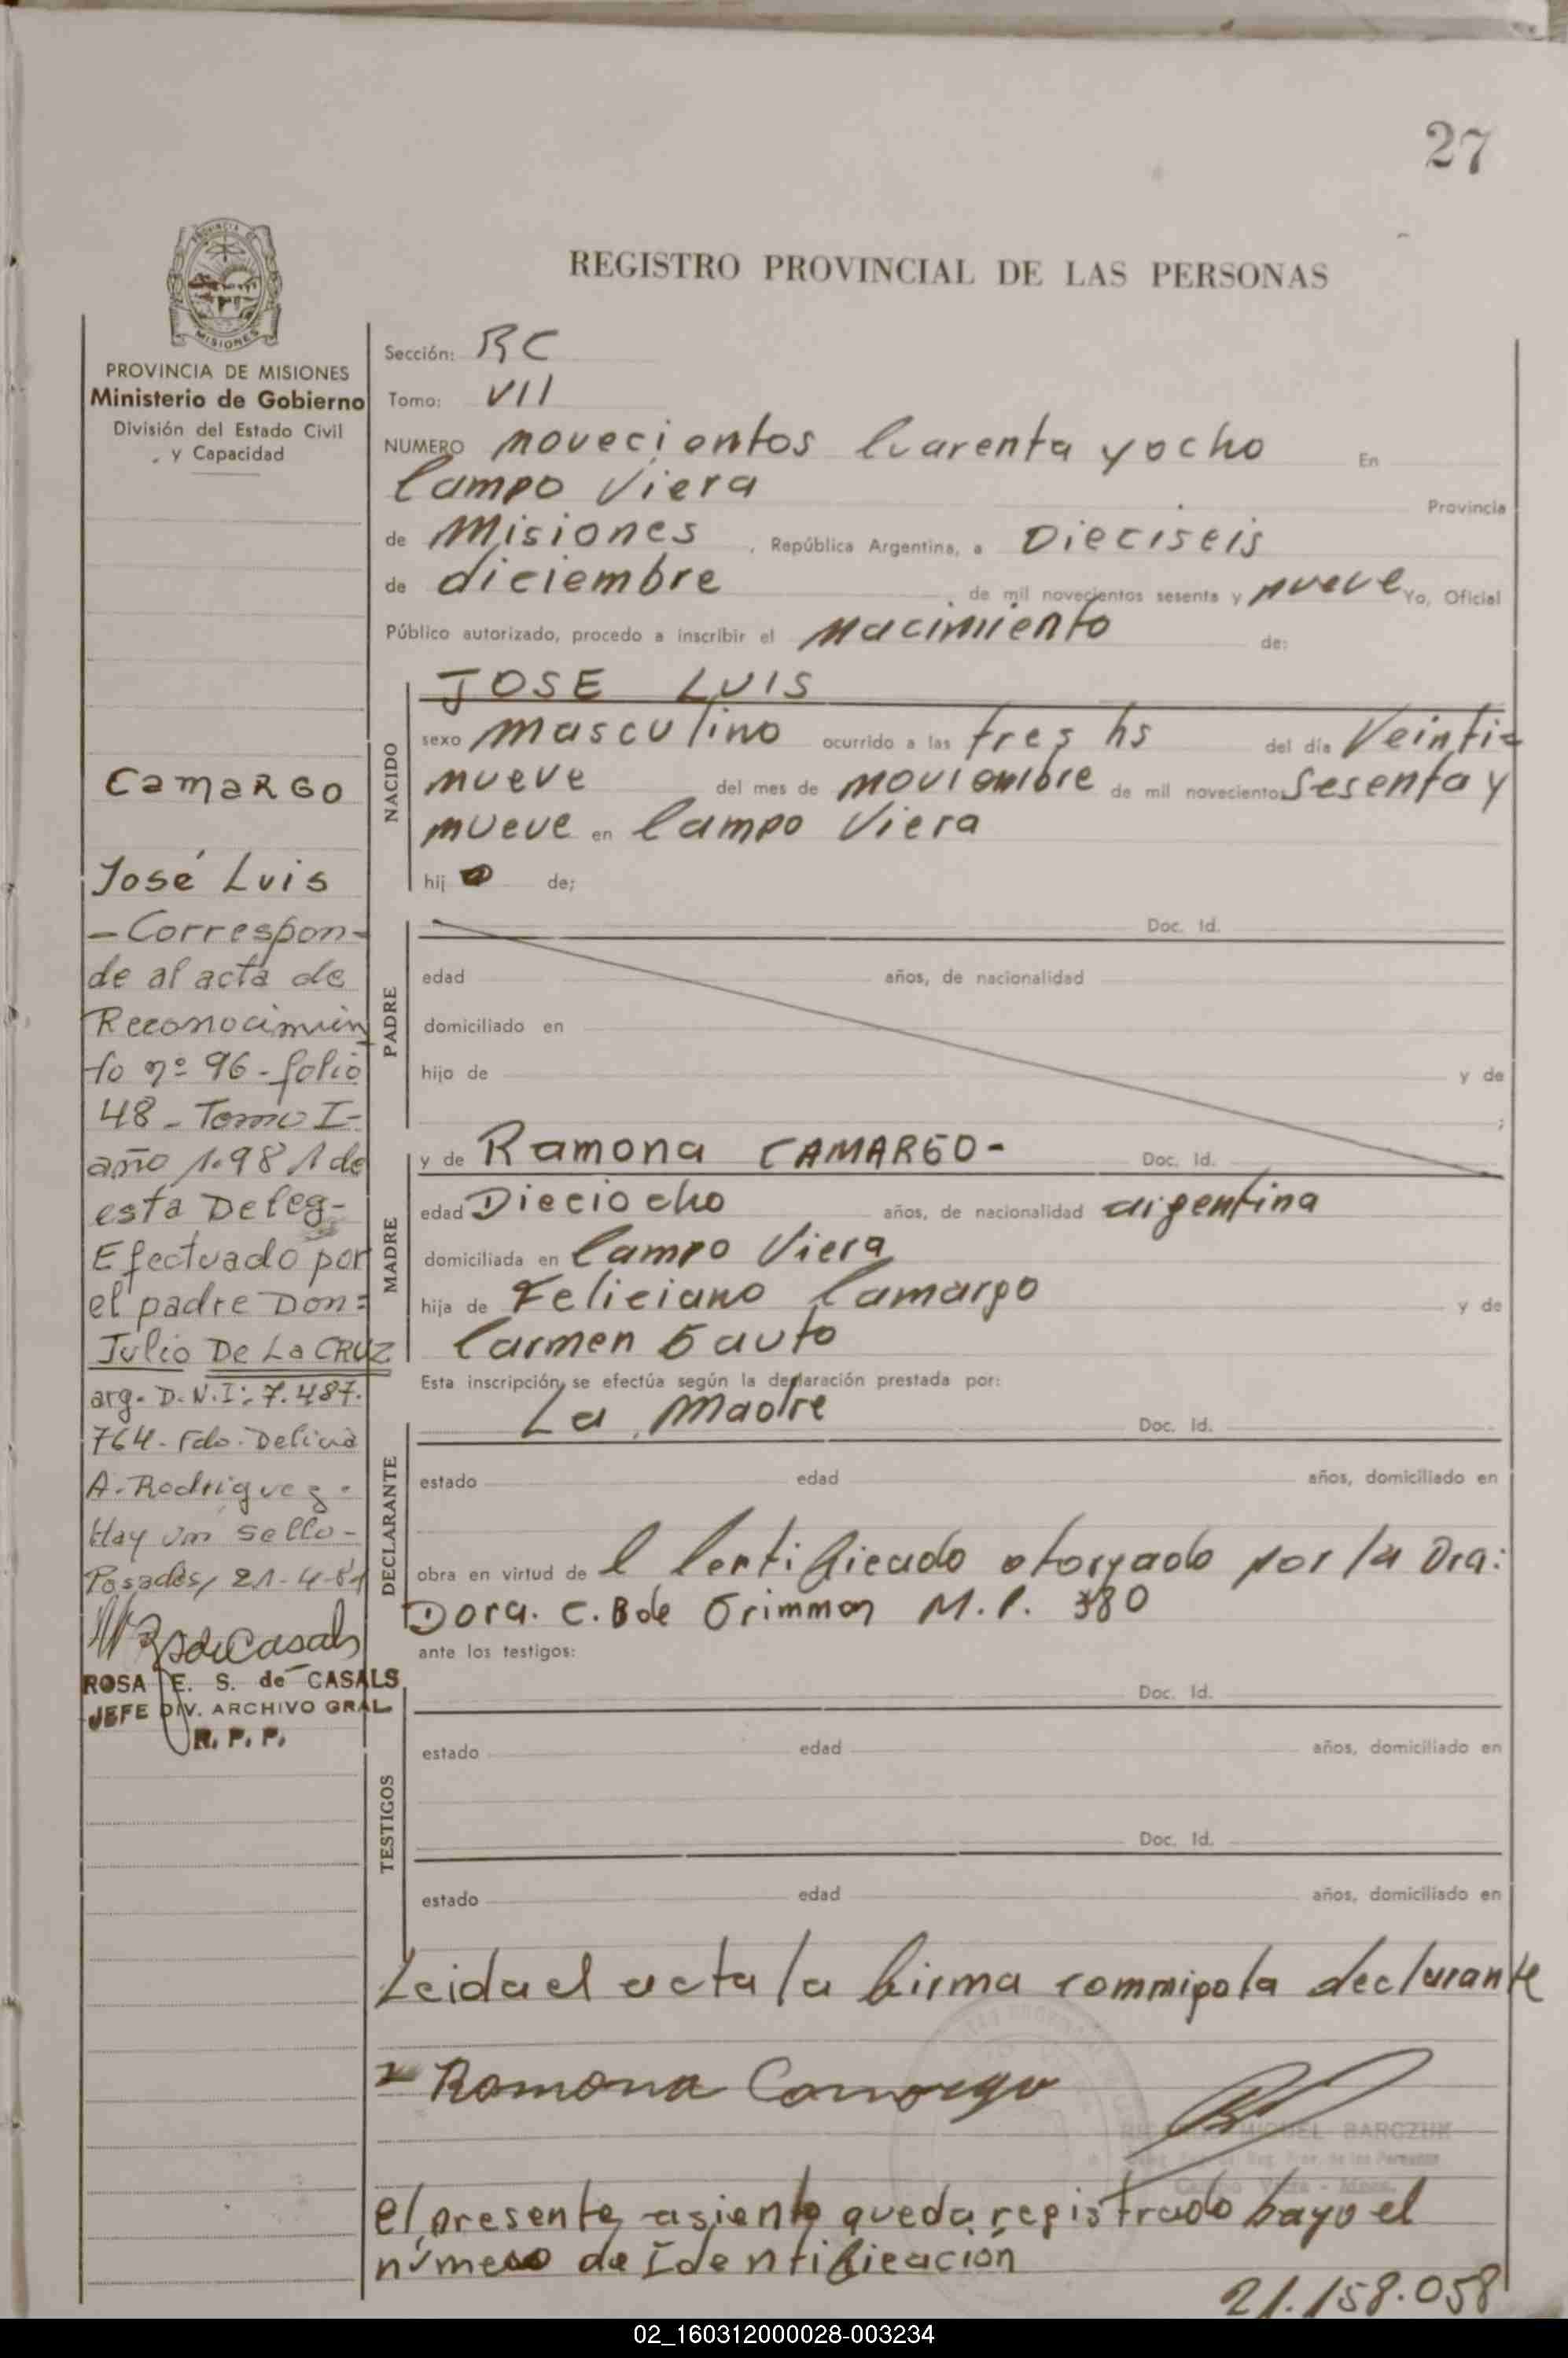 27
REGISTRO PROVINCIAL DE LAS PERSONAS
PROVINCIA DE MISIONES
Ministerio de Gobierno
División del Estado Civil
y Capacidad
CAMARGO
José Luis
- Correspon-
de al acta de
Reconocimien
to nº 96 - folio
48 - Tomo I -
año 1.981 de
esta Deleg-
Efectuado por
el padre Don=
Julio De La CRUZ
arg. D.N.I: 7.487.
764- Fdo. Delicia
A. Rodriguez.
Hay un sello-
Posadas, 21-4-81
ROSA E. S. de CASALS
JEFE DIV. ARCHIVO GRAL
R. P. P.
Sección: RC
Tomo: VII
NUMERO novecientos Cuarenta y ocho En
Campo Viera Provincia
de Misiones, República Argentina, a Dieciseis
de diciembre de mil novecientos sesenta y nueve Yo, Oficial
Público autorizado, procedo a inscribir el Nacimiento de:
NACIDO
JOSE LUIS
sexo masculino ocurrido a las tres hs del día Veinti=
nueve del mes de noviembre de mil novecientos Sesenta y
nueve en Campo Viera
hijo de;
PADRE
Doc. Id.
edad años, de nacionalidad
domiciliado en
hijo de y de
;
MADRE
y de Ramona CAMARGO- Doc. Id.
edad Dieciocho años, de nacionalidad argentina
domiciliada en Campo Viera
hija de Feliciano Camargo y de
Carmen Gauto
Esta inscripción se efectúa según la declaración prestada por:
DECLARANTE
La Madre Doc. Id.
estado edad años, domiciliado en
obra en virtud de l Certificado otorgado por la Dra:
Dora. C. B de Grimmon M.P. 380
ante los testigos:
TESTIGOS
Doc. Id.
estado edad años, domiciliado en
Doc. Id.
estado edad años, domiciliado en
Leida el acta la firma conmigo la declarante
Ramona Camargo
MIGUEL BARCZUK
Campo Viera - Mnes.
el presente asiento queda registrado bayo el
número de Identificación
21.158.058
02_160312000028-003234